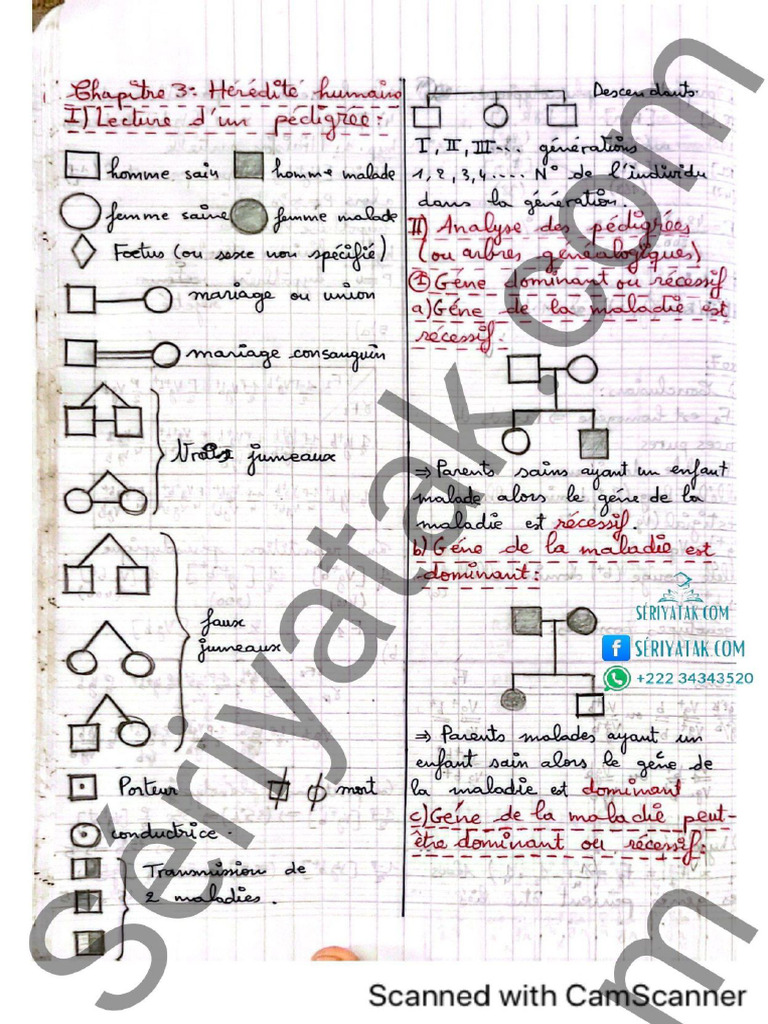 Chapitre 3: Hérédité humaine
I) Lecture d'un pédigrée:
homme sain homme malade
femme saine femme malade
Foetus (ou sexe non spécifié)
mariage ou union
mariage consanguin
Vrais jumeaux
faux
jumeaux
Porteur mort
conductrice.
Transmission de
2 maladies.
Descendants.
I, II, III.... générations
1, 2, 3, 4.... N° de l'individu
dans la génération.
II) Analyse des pédigrées
(ou arbres généalogiques)
① Gène dominant ou récessif
a) Gène de la maladie est
récessif.
⇒ Parents sains ayant un enfant
malade alors le gène de la
maladie est récessif.
b) Gène de la maladie est
dominant:
SÉRIYATAK.COM
f SÉRIYATAK.COM
+222 34343520
⇒ Parents malades ayant un
enfant sain alors le gène de
la maladie est dominant
c) Gène de la maladie peut-
être dominant ou récessif:
Sériyatak.com
m
Scanned with CamScanner